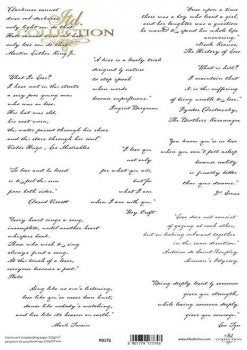 ITD.
COLLECTION
Darkness cannot
drive out darkness;
only love can do that.
Martin Luther King, Jr.
Once upon a time
there was a boy who loved a girl
and her laughter was a question
he wanted to spend his whole life
answering.
Nicole Krauss,
The History of Love
"A kiss is a lovely trick
designed by nature
to stop speech
when words
become superfluous."
Ingrid Bergman
What Is Love?
I have met in the streets
a very poor young man
who was in love.
His hat was old,
his coat worn,
the water passed through his shoes
and the stars through his soul.
Victor Hugo, Les Misérables
"What is hell?
I maintain that
it is the suffering
of being unable to love."
Fyodor Dostoevsky,
The Brothers Karamazov
You know you're in love
when you can't fall asleep
because reality
is finally better
than your dreams."
Dr. Seuss
"I love you
not only
for what you are,
but for
what I am
when I am with you."
Roy Croft
"To love and be loved
is to feel the sun
from both sides."
David Viscott
"Every heart sings a song,
incomplete, until another heart
whispers back.
Those who wish to sing
always find a song.
At the touch of a lover,
everyone becomes a poet."
Plato
"Love does not consist
of gazing at each other,
but in looking outward together
in the same direction."
Sing like no one's listening,
love like you've never been hurt,
dance like nobody's watching,
and live like its heaven on earth.
Mark Twain
"Being deeply loved by someone
gives you strength,
while loving someone deeply
gives you courage."
Lao Tzu
P0175
www.itdcollection.com
ITD.
COLLECTION